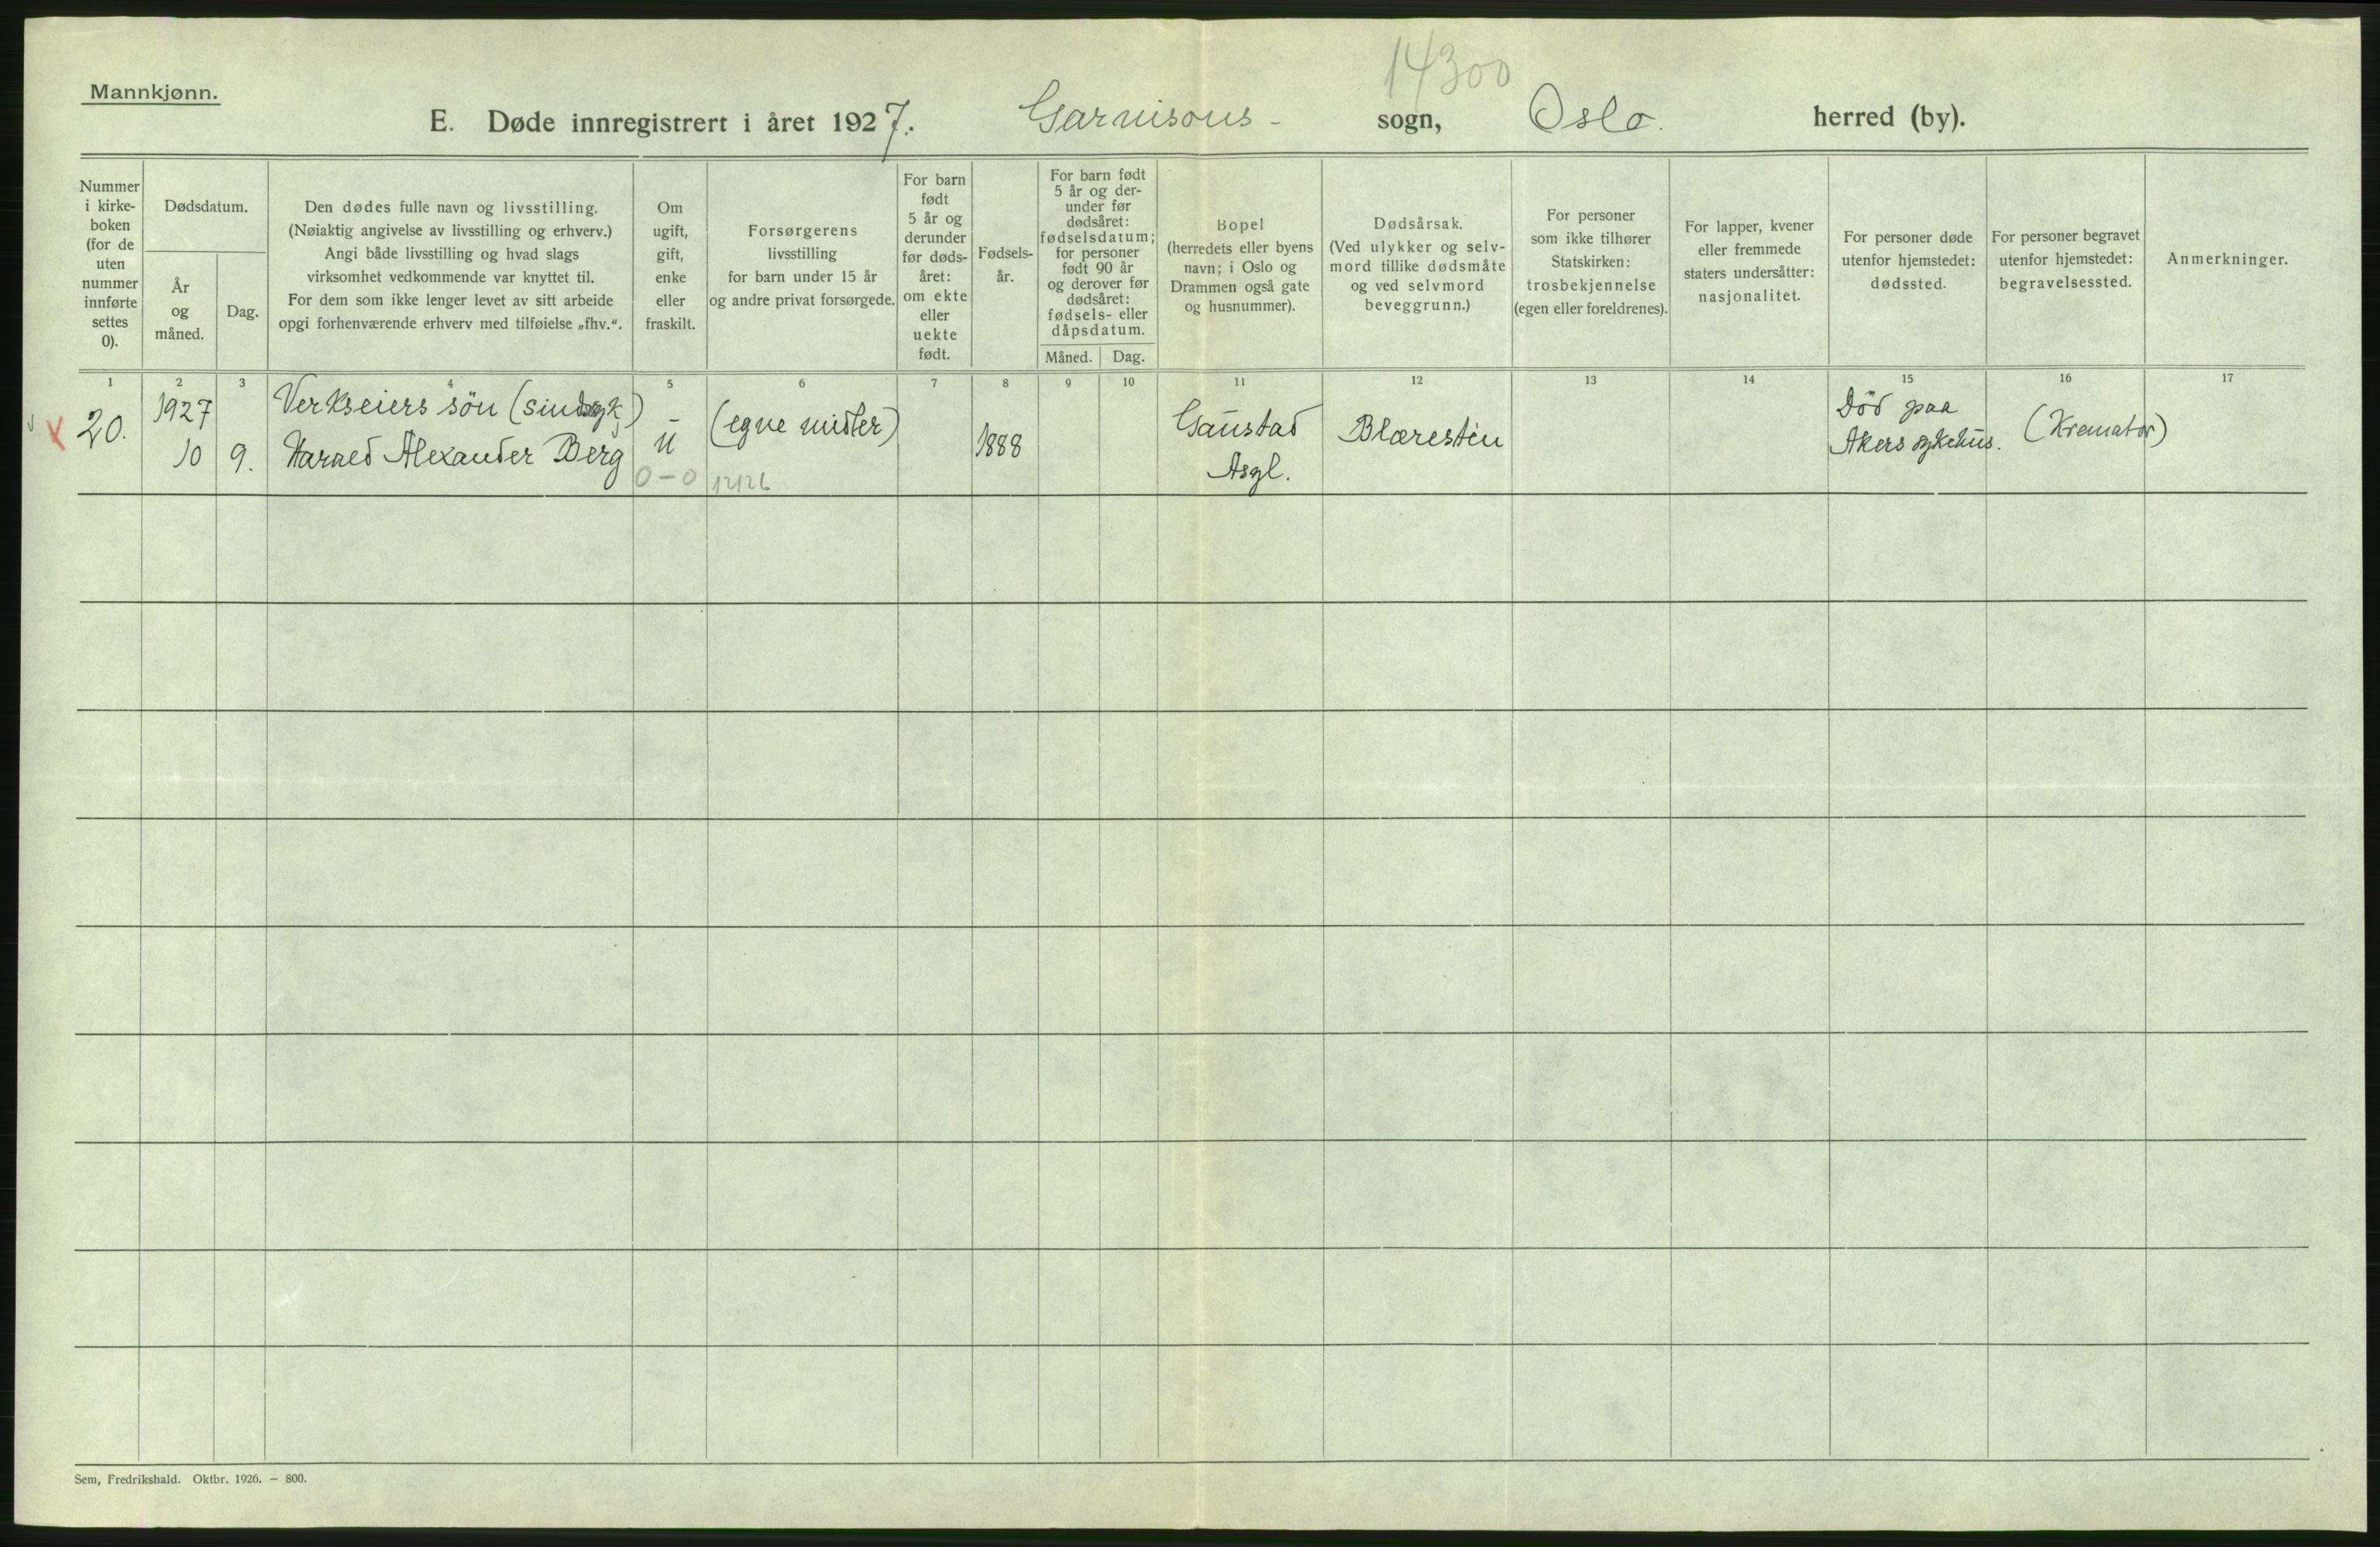 14300
Mannkjønn.
E. Døde innregistrert i året 1927. Garnisons- sogn, Oslo. herred (by).
Nummer
i kirke-
boken
(for de
uten
nummer
innførte
settes
0).
Dødsdatum.
År
og
måned.
Dag.
Den dødes fulle navn og livsstilling.
(Nøiaktig angivelse av livsstilling og erhverv.)
Angi både livsstilling og hvad slags
virksomhet vedkommende var knyttet til.
For dem som ikke lenger levet av sitt arbeide
opgi forhenværende erhverv med tilføielse „fhv.“.
Om
ugift,
gift,
enke
eller
fraskilt.
Forsørgerens
livsstilling
for barn under 15 år
og andre privat forsørgede.
For barn
født
5 år og
derunder
før døds-
året:
om ekte
eller
uekte
født.
Fødsels-
år.
For barn født
5 år og der-
under før
dødsåret:
fødselsdatum;
for personer
født 90 år
og derover før
dødsåret:
fødsels- eller
dåpsdatum.
Måned. Dag.
Bopel
(herredets eller byens
navn; i Oslo og
Drammen også gate
og husnummer).
Dødsårsak.
(Ved ulykker og selv-
mord tillike dødsmåte
og ved selvmord
beveggrunn.)
For personer
som ikke tilhører
Statskirken:
trosbekjennelse
(egen eller foreldrenes).
For lapper, kvener
eller fremmede
staters undersåtter:
nasjonalitet.
For personer døde
utenfor hjemstedet:
dødssted.
For personer begravet
utenfor hjemstedet:
begravelsessted.
Anmerkninger.
1 2 3 4 5 6 7 8 9 10 11 12 13 14 15 16 17
20.
1927
10 9.
Verkseiers sön (sindsyk)
Harald Alexander Berg
ū
0-0
(egne midler)
12126
1888
Gaustad
Asyl.
Blæresten
Död paa
Akers sykehus.
(Kremator)
Sem, Fredrikshald. Oktbr. 1926. — 800.